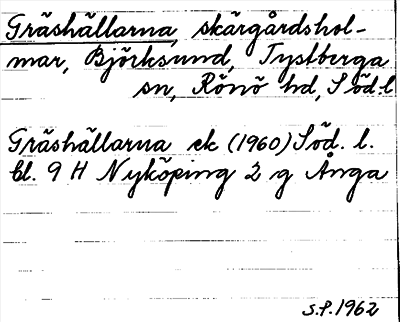 Gräshällarna, skärgårdshol-
mar, Björksund, Tystberga
sn, Rönö hd, Söd.l
Gräshällarna ek (1960) Söd. l.
bl. 9 H Nyköping 2 g Ånga
S.P. 1962